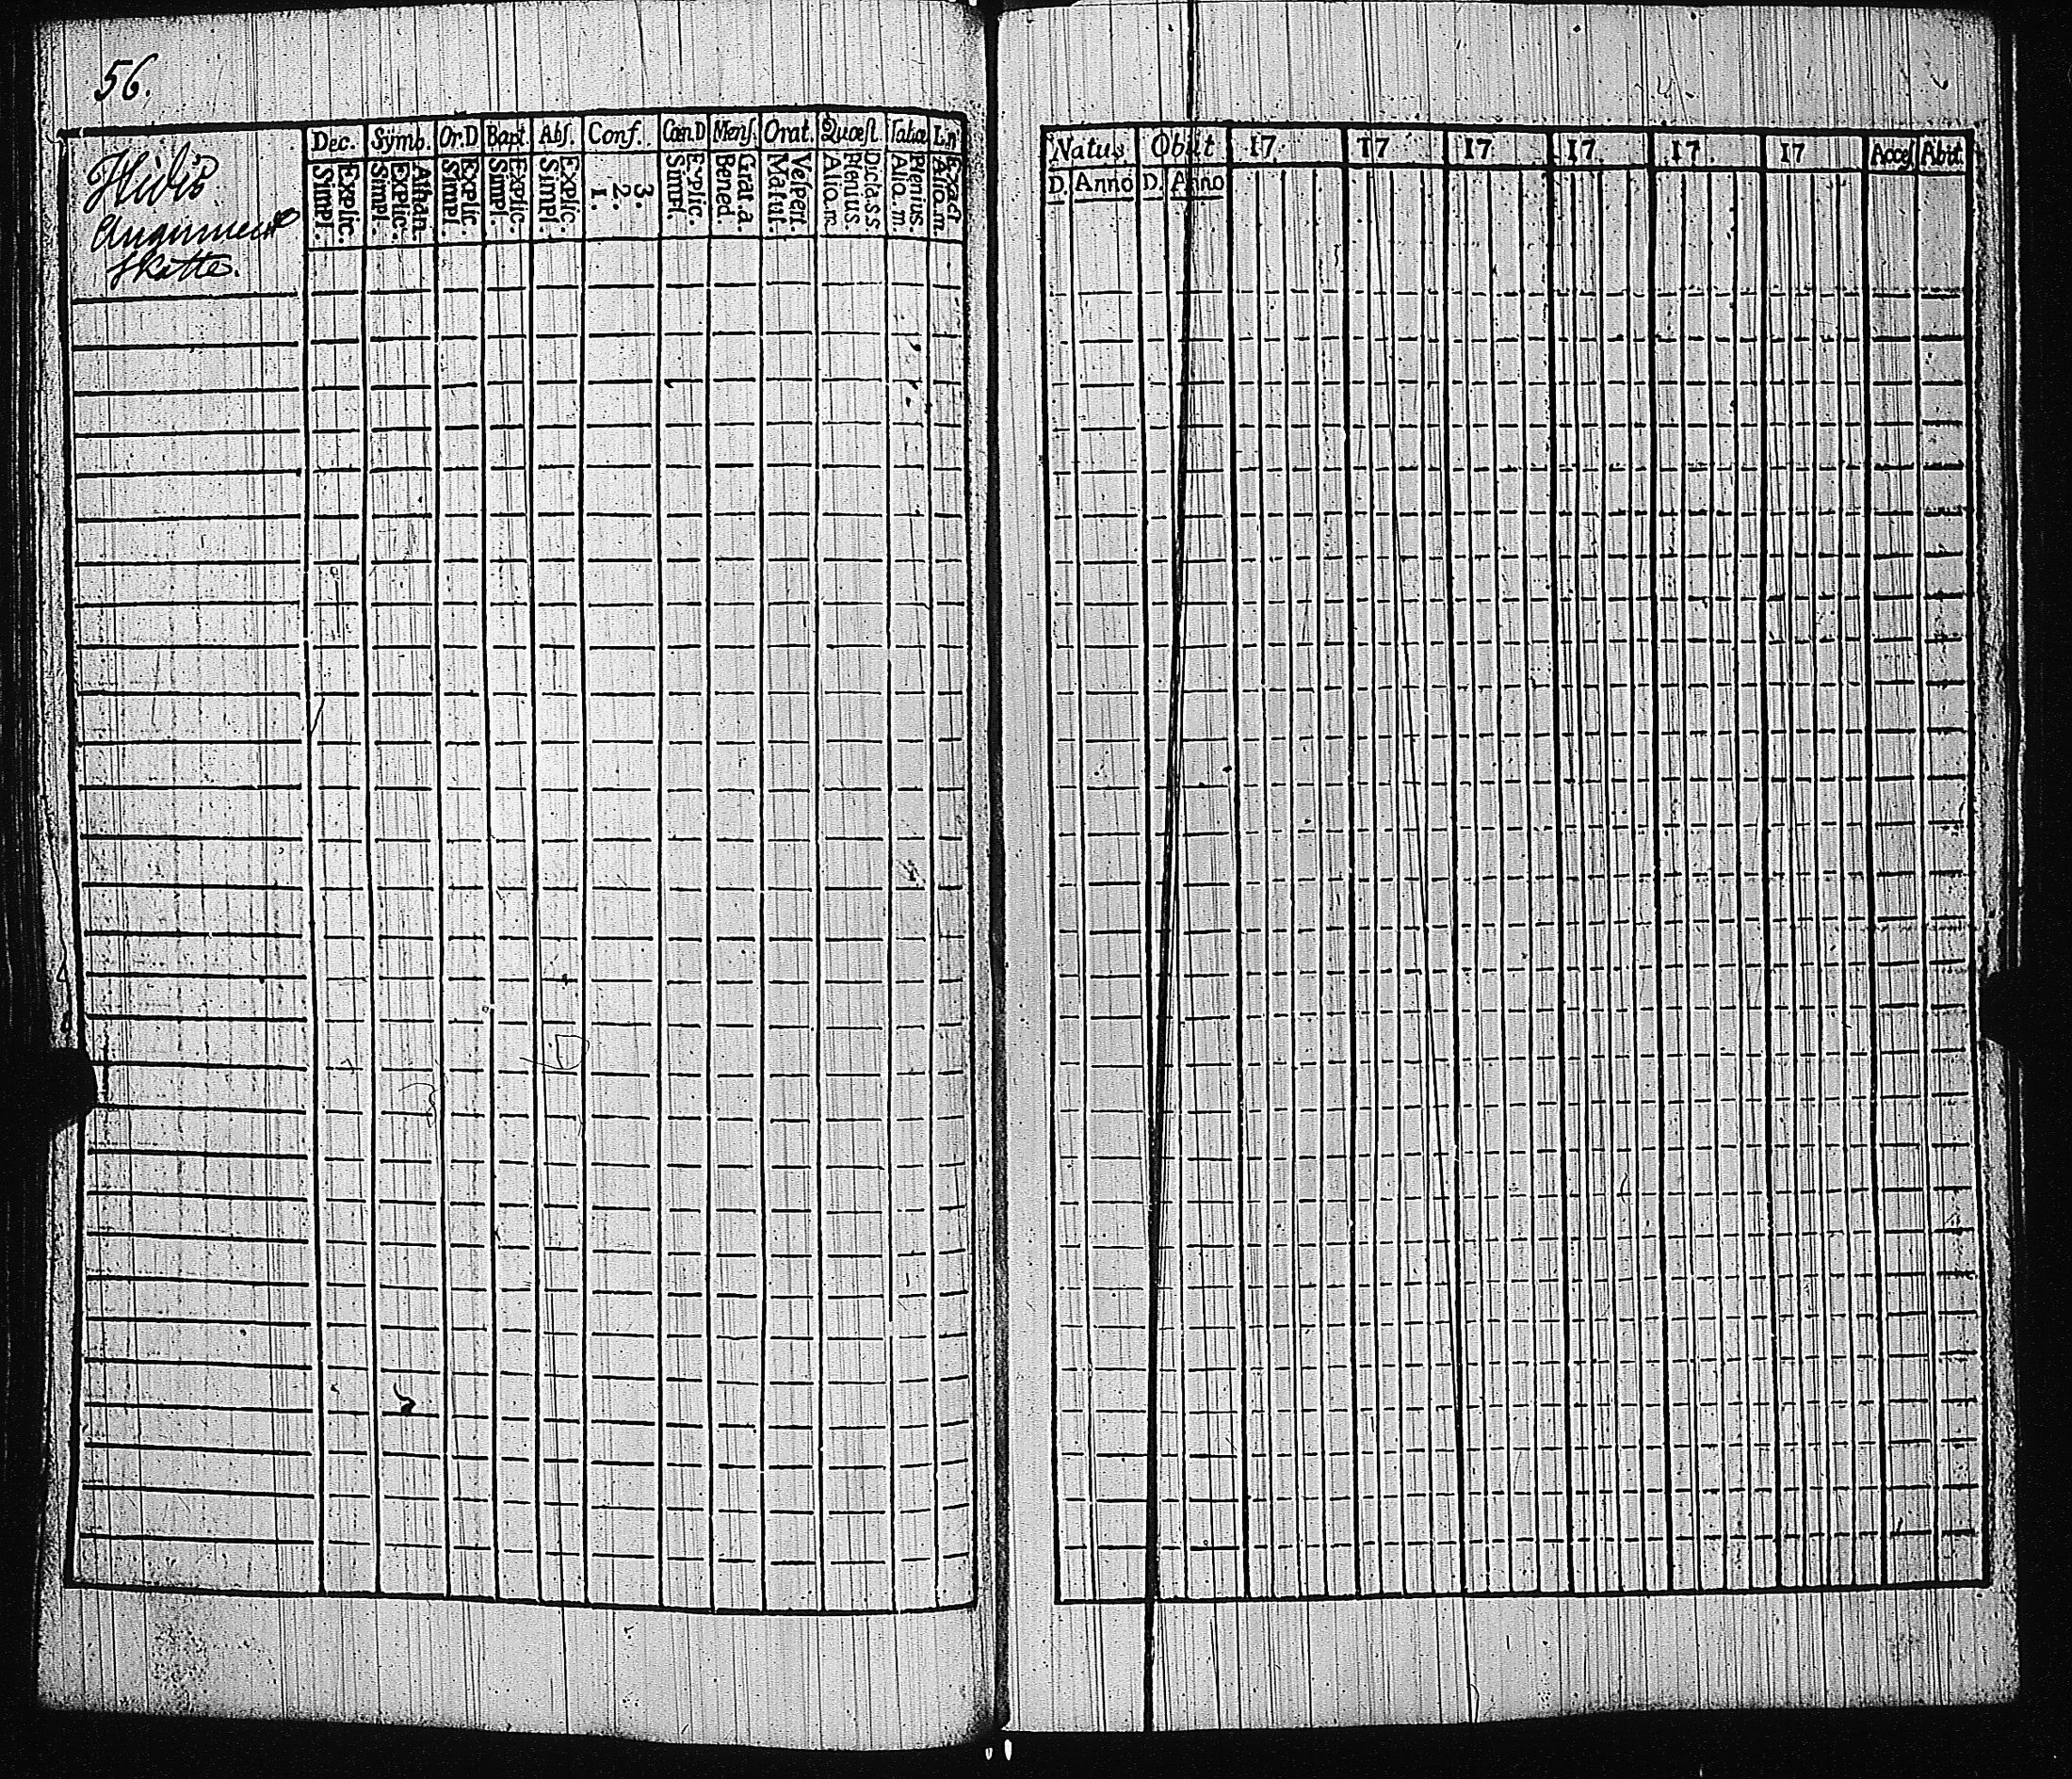 56.
Dec. Symb. Or.D Bapt. Abſ. Conf. Cœn.D Menſ. Orat. Quœſt.
Explic. Simpl.
Athan. Explic. Simpl.
Explic. Simpl.
Explic. Simpl.
Explic. Simpl.
3. 2. 1.
Explic. Simpl.
Grat.a. Bened.
Veſpert. Matut.
Plenius. Alio.m
Plenius. Alio.m
Alio.m.
skatte.
Natus Obiit 17 17 17 17 17 17 Acceſ Abiit
D. Anno D. Anno